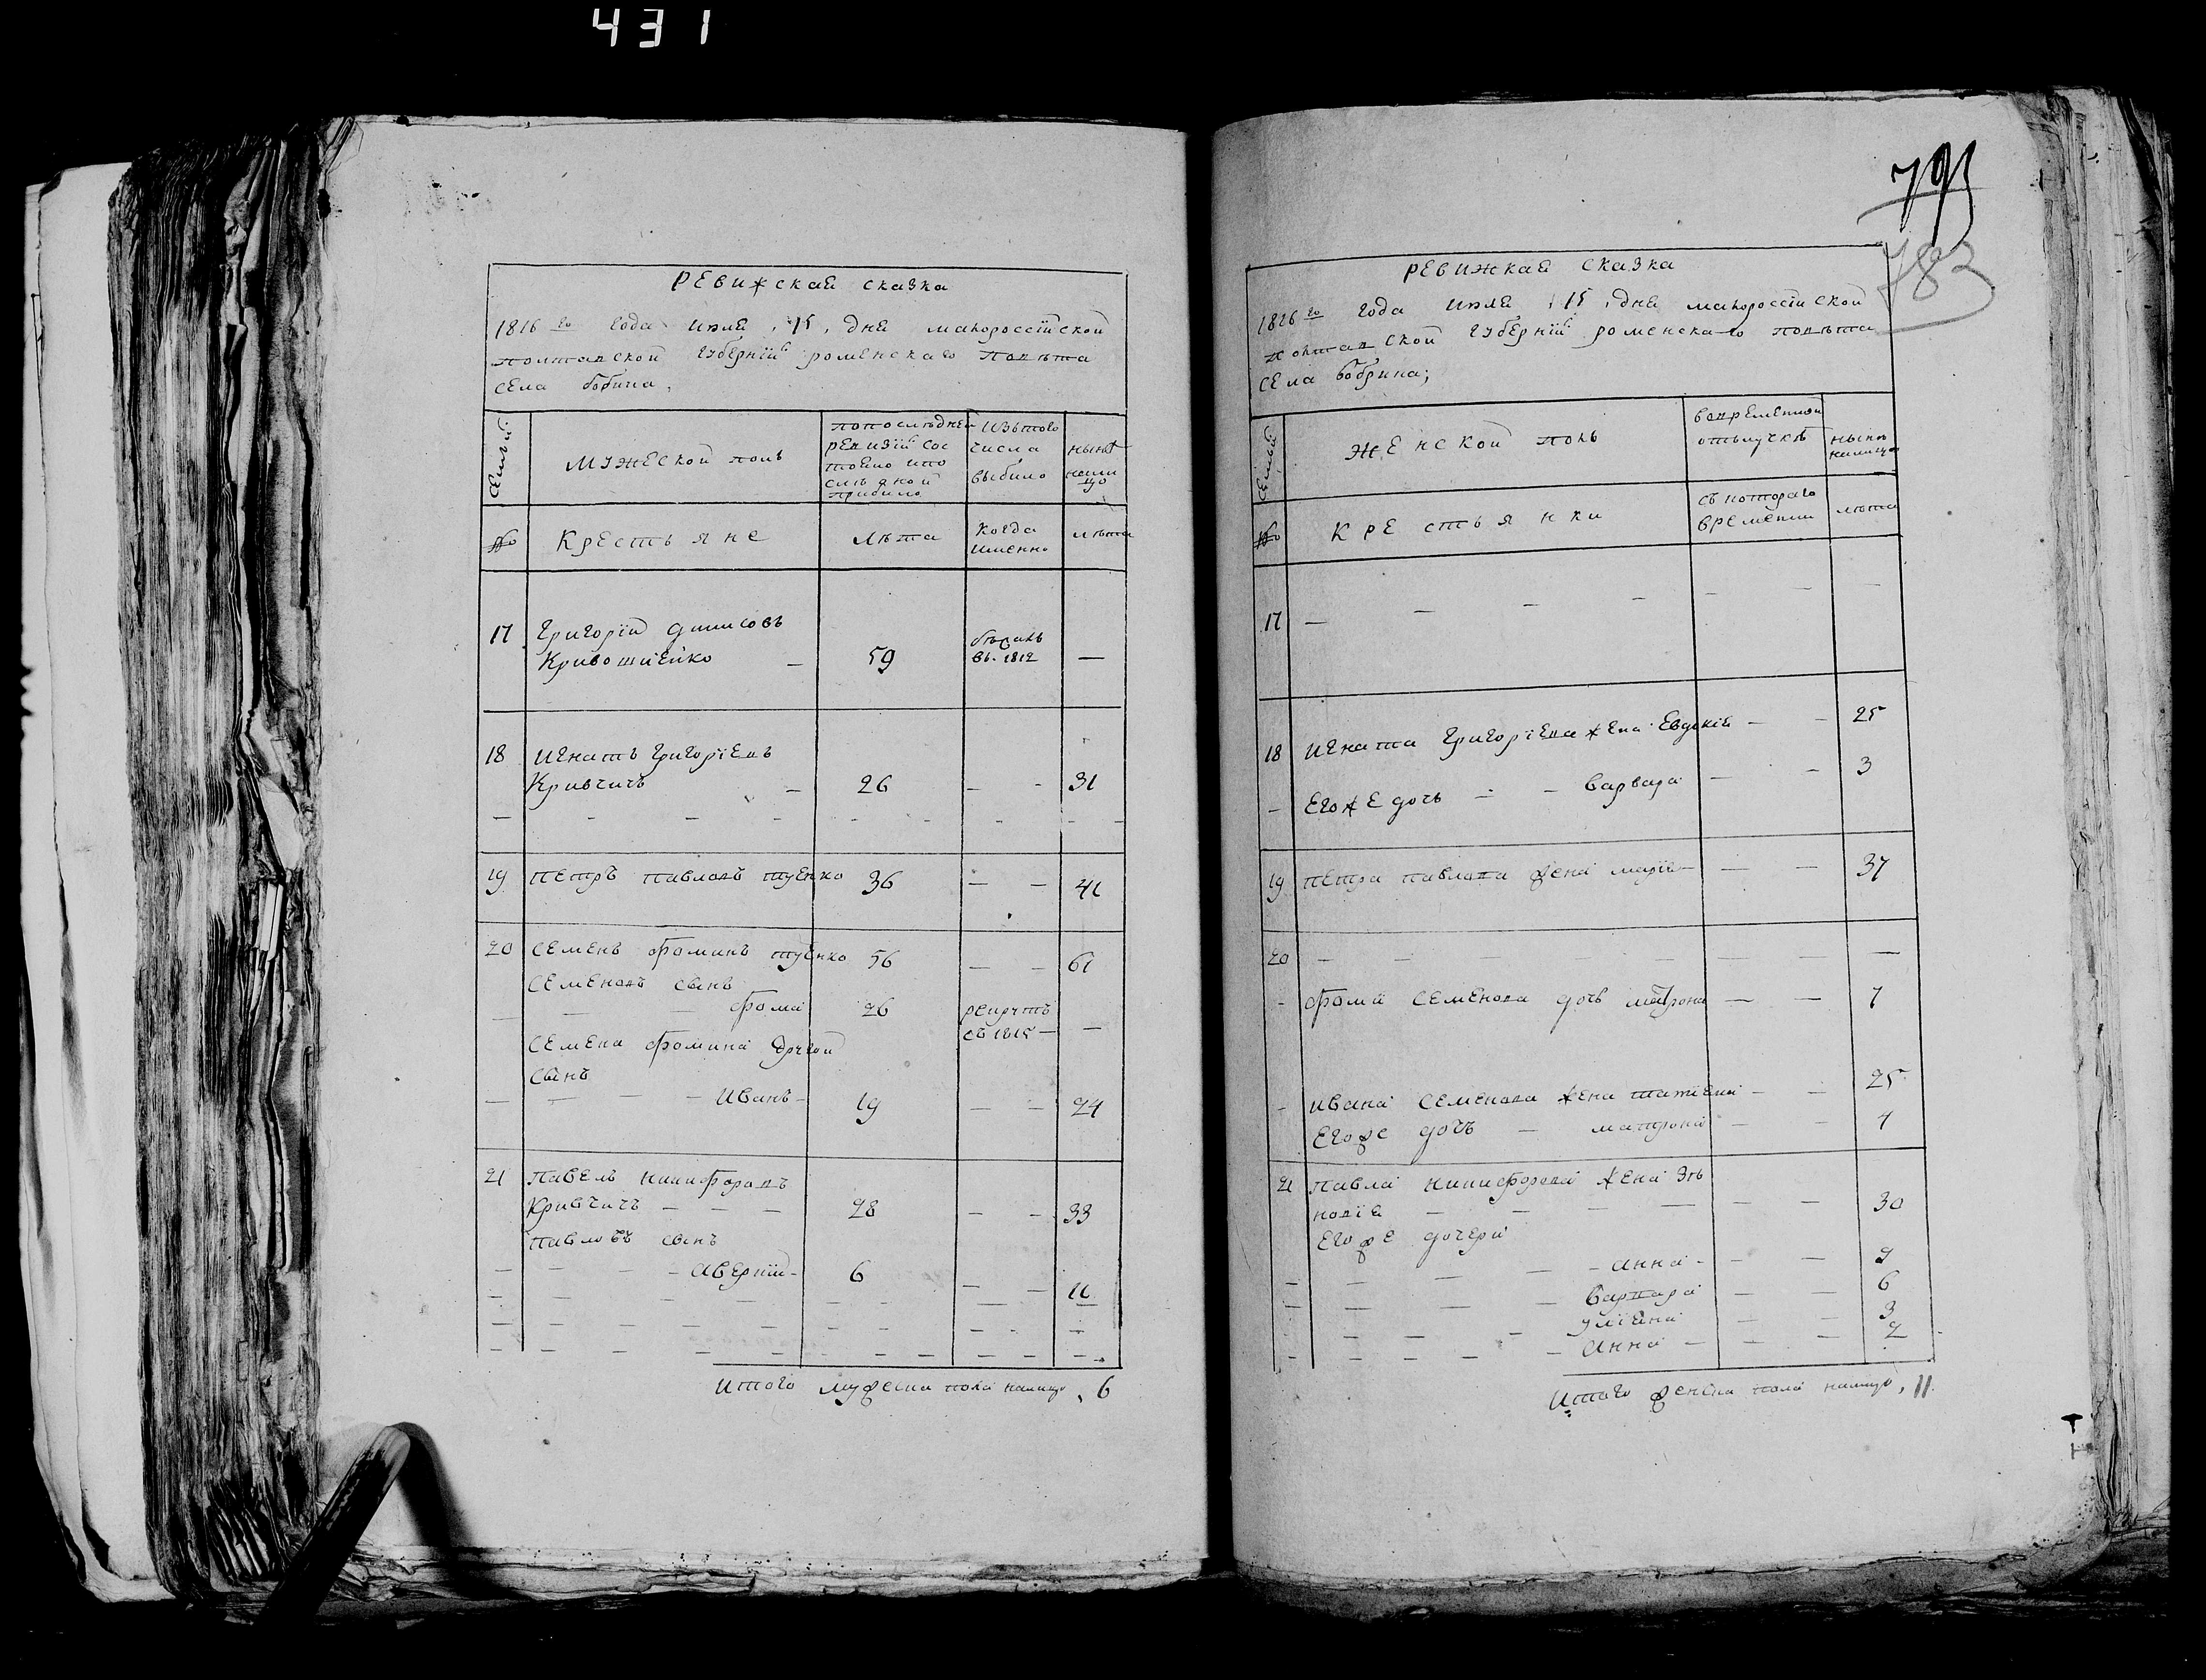 431
РЕВИЖСКАЯ СКАЗКА
1816 го года июля 15 дня малороссїйской
полтавской губернїи роменскаго повѣта
села бобрина,
семьи
МУЖЕСКОЙ полъ
попослѣдней ревизїи состояло и после оной прибило
Изътого числа выбило
нынѣ налицо
№
Крестьяне
лѣта
когда именно
лѣта
17 Григорїй динисовъ
Кривошиенко — 59 бѣжалъ въ 1812 —
18 Игнатъ григорїевъ
Кривчичъ — 26 — - 31
19 ПЕтръ павловъ туенко 36 — — 41
20 СЕменъ фоминъ туенко 56 — — 61
СЕменовъ сынъ
фома 26 рекрутъ съ 1815 — —
СЕмена фомина другой
сынъ
— Иванъ — 19 — — 24
21 павелъ никифоровъ
Кривчичъ — — — 28 — - 33
павловъ сынъ
— Аверкїй — 6 — - 11
Итого мужеска пола налицо, 6
793
783
РЕВИЖКАЯ СКАЗКА
1816 го года июля 15 дня малороссїиской
полтавской губернїи роменскаго повѣта
села бобрина;
семьи
ЖЕНСКОЙ полъ
вовременной отълучкѣ
нынѣ налицо
№
КРЕстьянки
съ котораго времени
лѣта
17 — — — —
18 Игната григорїева жена Евдокїя — - 25
— Егоже дочь — — Варвара — - 3
19 ПЕтра павлова жена марїя — — — 37
20 — — — — —
- фомы СЕменова дочь матрона — — 7
- Ивана СЕменова жена татїяна — - 25
Егоже дочь — матрона — - 4
21 павла никифорова жена Зѣ
новїя — — — — — 30
Егоже дочери
— Анна — - 9
— Варвара — - 6
— улїяна — - 3
— Анна — - 2
Итого женска пола налицо, 11.